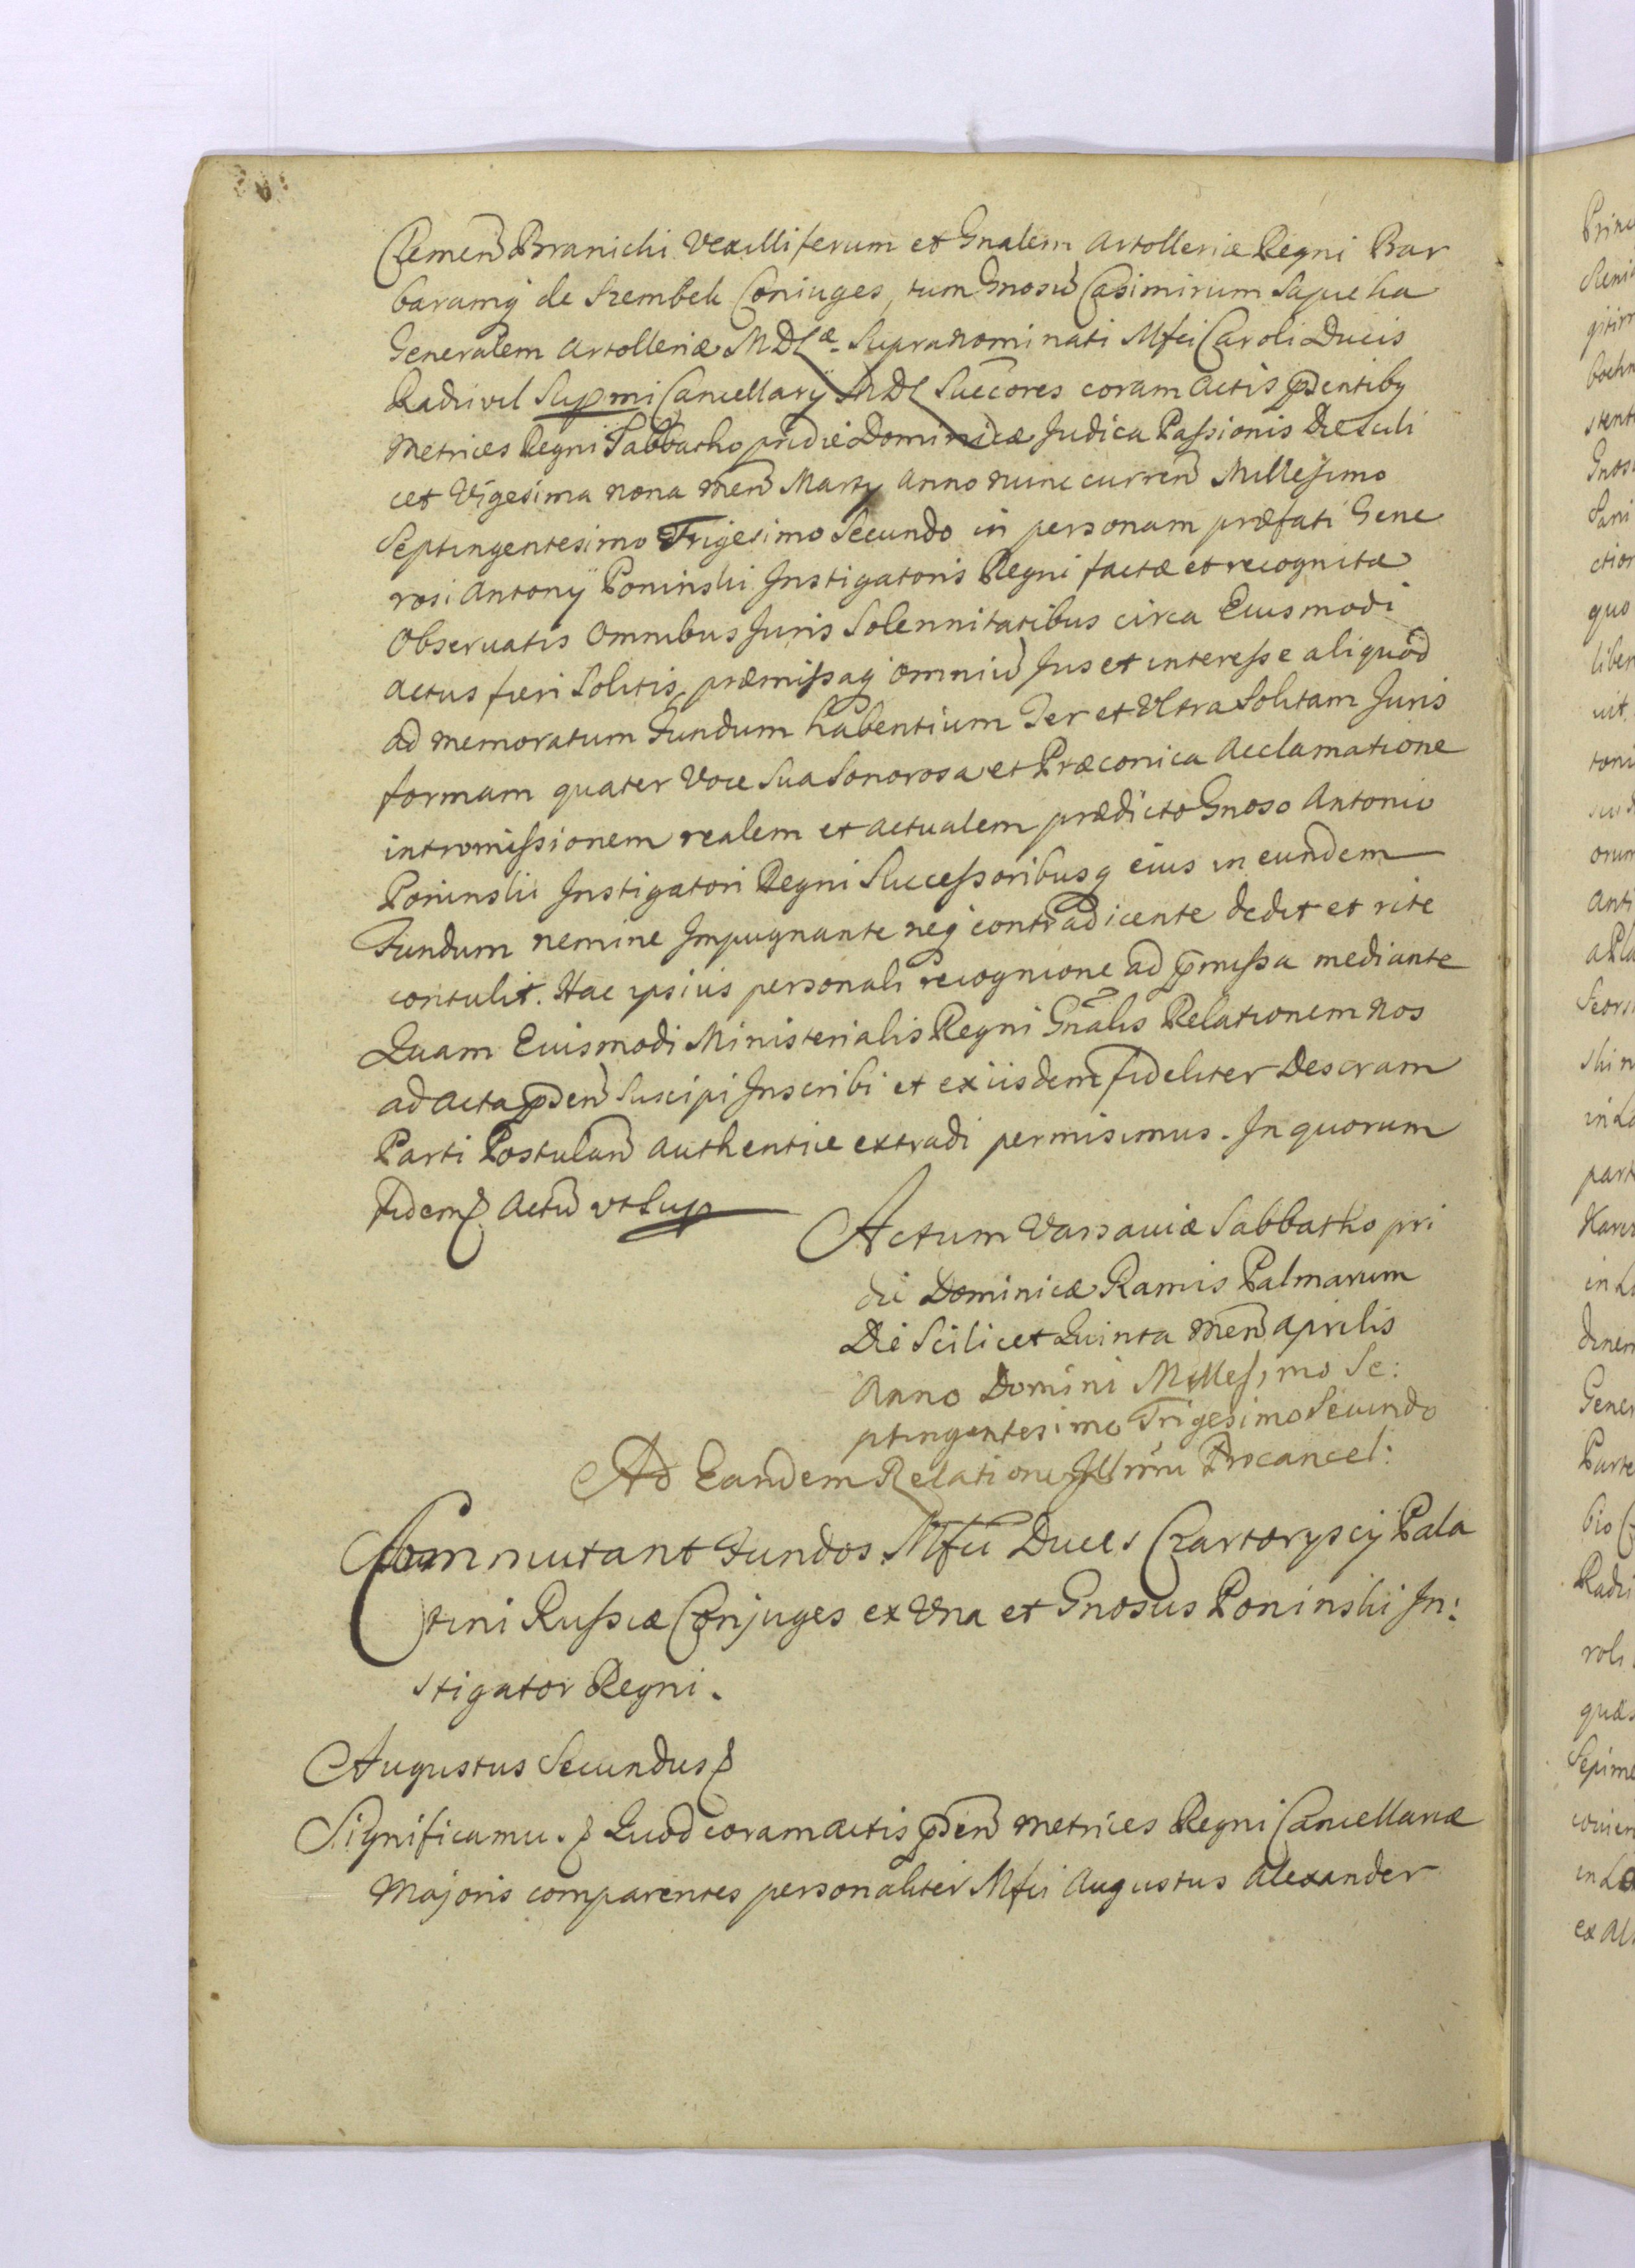 Clemen Branicki Vexilliferum et Gnalem Artolleriæ Regni Bar
baramq de Szembek Coniuges, tum Gnosu Casimirum Sapieha
Generalem Artolleriæ MDLæ. Supranominati Mfci Caroli Ducis
Radzivil Supmi Cancellarÿ MDL Succores coram Actis pdentibq
Metrices Regni Sabbatho pridie Dominicæ Judica Passionis Die Scili
cet Vigesima nona men Martÿ Anno nunc curren Millesimo
Septingentesimo Trigesimo Secundo in personam præfati Gene
rosi Antonÿ Poninski Instigatoris Regni factæ et recognitæ
Observatis Omnibus Juris Solennitatibus circa Eiusmodi
actus fieri Solitis, præmissaq omniu Jus et interesse aliquod
ad memoratum Fundum habentium Ter et Ultra Solitam Juris
formam quater Voce Sua Sonorosa et Præconica Acclamatione
intromissionem realem et actualem prædicto Gnoso Antonio
Poninski Instigatori Regni Successoribusq eius in eundem
Fundum nemine Impugnante neq contradicente dedit et rite
contulit. Hac ipsius personali recognione ad pmissa mediante
Quam Eiusmodi Ministerialis Regni Gnalis Relationem Nos
ad Acta pden Suscipi Inscribi et ex iisdem fideliter Descram
Parti Postulan authentice extradi permisimus. In quorum
fidem Actu vt Sup
Actum Varsaviæ Sabbatho pri
die Dominicæ Ramis Palmarum
Die Scilicet Quinta men Aprilis
Anno Domini Millesimo Se:
ptingentesimo Trigesimo Secundo
Ad Eandem Relatione Illrmi Procancel:
Commutant Fundos Mfci Duces Czartoryscÿ Pala
tini Russiæ Conjuges ex Una et Gnosus Poninski In:
stigator Regni.
Augustus Secundus
Significamu. Quod coram actis pden Metrices Regni Cancellariæ
Majoris comparentes personaliter Mfci Augustus Alexander